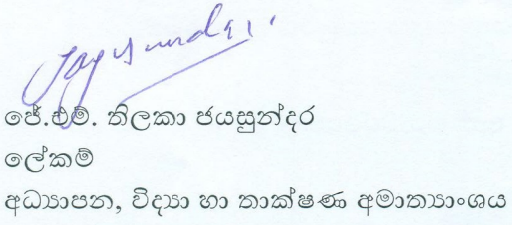 ජේ.එම්. තිලකා ජයසුන්දර
ලේකම්
අධ්‍යාපන, විද්‍යා හා තාක්ෂණ අමාත්‍යාංශය